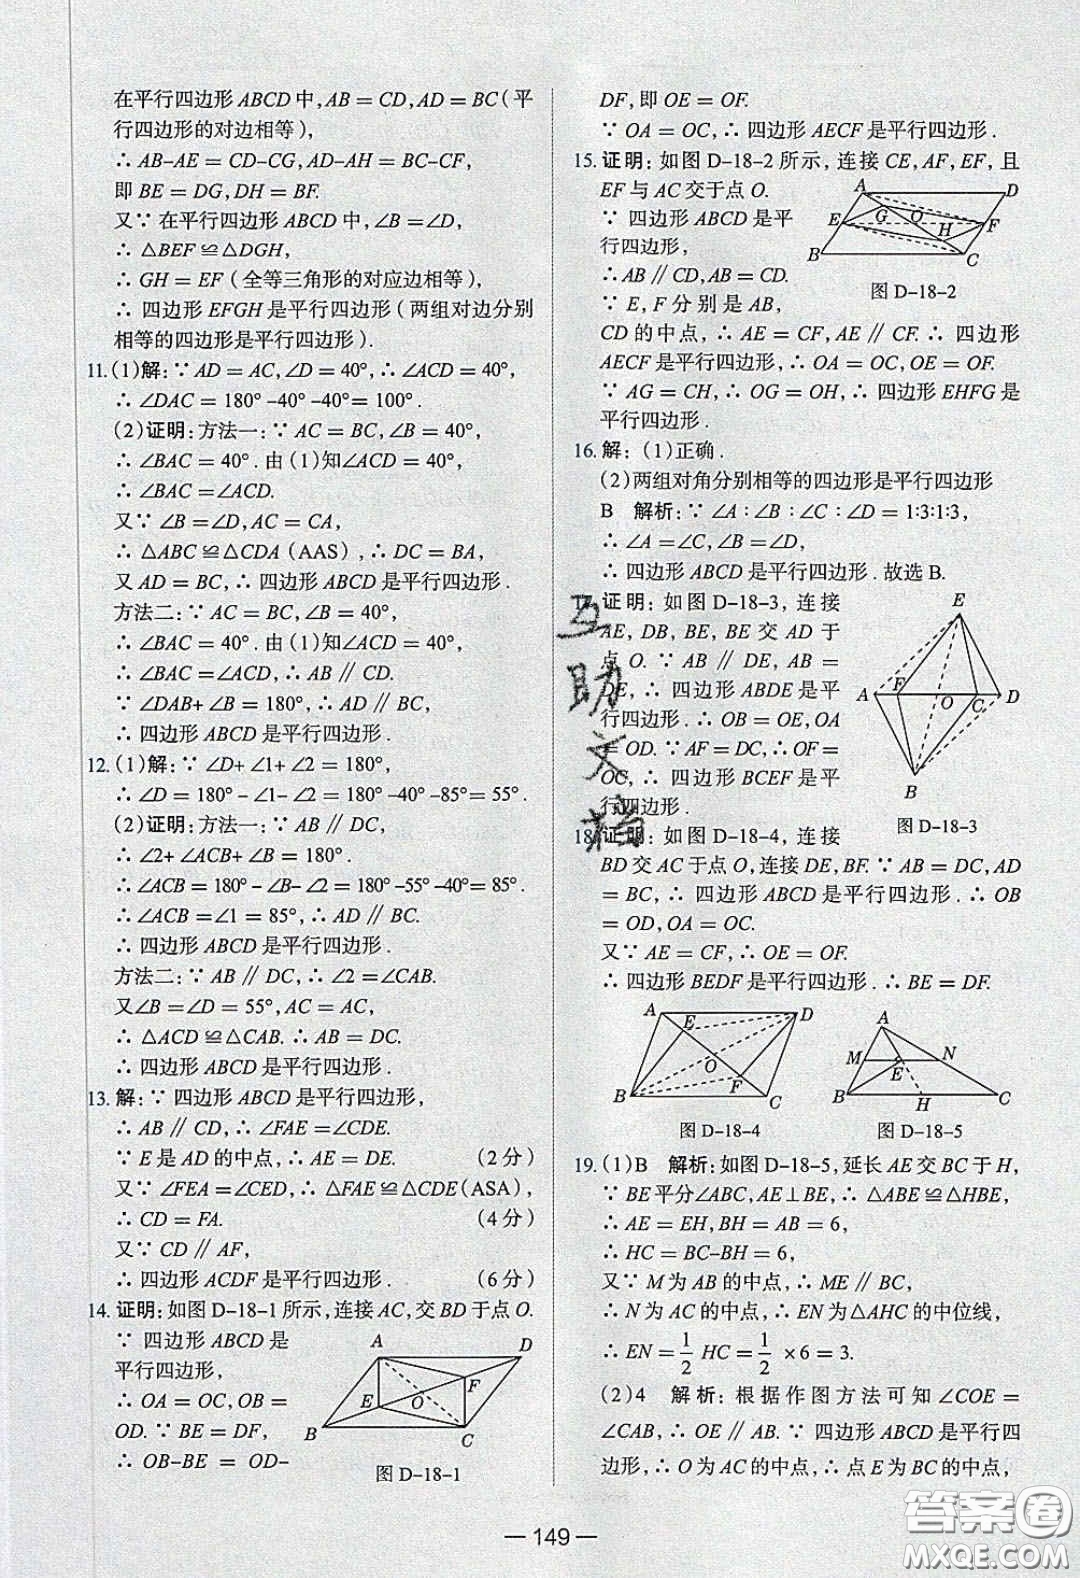 在平行四边形 ABCD 中,AB = CD,AD = BC(平
行四边形的对边相等),
∴ AB-AE = CD-CG,AD-AH = BC-CF,
即 BE = DG,DH = BF.
又∵ 在平行四边形 ABCD 中,∠B =∠D,
∴ △BEF ≌△DGH,
∴ GH = EF(全等三角形的对应边相等),
∴ 四边形 EFGH 是平行四边形(两组对边分别
相等的四边形是平行四边形).
11.(1)解:∵ AD = AC,∠D = 40°,∴ ∠ACD = 40°,
∴ ∠DAC = 180°-40°-40°=100°.
(2)证明:方法一:∵ AC = BC,∠B = 40°,
∴ ∠BAC = 40°.由(1)知∠ACD = 40°,
∴ ∠BAC =∠ACD.
又∵ ∠B =∠D,AC = CA,
∴ △ABC ≌△CDA(AAS),∴ DC = BA,
又 AD = BC,∴ 四边形 ABCD 是平行四边形.
方法二:∵ AC = BC,∠B = 40°,
∴ ∠BAC = 40°.由(1)知∠ACD = 40°,
∴ ∠BAC =∠ACD,∴ AB ∥ CD.
∵ ∠DAB+ ∠B = 180°,∴ AD ∥ BC,
∴ 四边形 ABCD 是平行四边形.
12.(1)解:∵ ∠D+ ∠1+ ∠2 = 180°,
∴ ∠D = 180°- ∠1- ∠2 = 180°-40°-85°= 55°.
(2)证明:方法一:∵ AB ∥ DC,
∴ ∠2+ ∠ACB+ ∠B = 180°.
∴ ∠ACB = 180°- ∠B- ∠2 = 180°-55°-40°= 85°.
∴ ∠ACB =∠1 = 85°,∴ AD ∥ BC.
∴ 四边形 ABCD 是平行四边形.
方法二:∵ AB ∥ DC,∴ ∠2 =∠CAB.
又∠B =∠D = 55°,AC = AC,
∴ △ACD ≌△CAB. ∴ AB = DC.
∴ 四边形 ABCD 是平行四边形.
13.解:∵ 四边形 ABCD 是平行四边形,
∴ AB ∥ CD,∴ ∠FAE =∠CDE.
∵ E 是 AD 的中点,∴ AE = DE. (2 分)
又∵ ∠FEA =∠CED,∴ △FAE ≌△CDE(ASA),
∴ CD = FA. (4 分)
又∵ CD ∥ AF,
∴ 四边形 ACDF 是平行四边形. (6 分)
14.证明:如图 D-18-1 所示,连接 AC,交 BD 于点 O.
∵ 四边形 ABCD 是
平行四边形,
∴ OA = OC,OB =
OD. ∵ BE = DF,
∴ OB-BE = OD-
A
D
E
O
F
B
C
图 D-18-1
DF,即 OE = OF.
∵ OA = OC,∴ 四边形 AECF 是平行四边形.
15.证明:如图 D-18-2 所示,连接 CE,AF,EF,且
EF 与 AC 交于点 O.
∵ 四边形 ABCD 是平
行四边形,
∴ AB ∥ CD,AB = CD.
∵ E,F 分 别 是 AB,
A
D
G
O
E
F
H
B
C
图 D-18-2
CD 的中点,∴ AE = CF,AE ∥ CF. ∴ 四边形
AECF 是平行四边形,∴ OA = OC,OE = OF.
∵ AG = CH,∴ OG = OH,∴ 四边形 EHFG 是
平行四边形.
16.解:(1)正确.
(2)两组对角分别相等的四边形是平行四边形
B 解析:∵ ∠A∶∠B∶∠C∶∠D = 1∶3∶1∶3,
∴ ∠A =∠C,∠B =∠D,
∴ 四边形 ABCD 是平行四边形.故选 B.
证明:如图 D-18-3,连接
AE,DB,BE,BE 交 AD 于
点 O. ∵ AB ∥ DE,AB =
DE,∴ 四边形 ABDE 是平
行四边形,∴ OB = OE,OA
= OD. ∵ AF = DC,∴ OF =
OC,∴ 四边形 BCEF 是平
行四边形.
E
A
F
O
C
D
B
图 D-18-3
18.证明:如图 D-18-4,连接
BD 交 AC 于点 O,连接 DE,BF. ∵ AB = DC,AD
= BC,∴ 四边形 ABCD 是平行四边形.∴ OB
= OD,OA = OC.
又∵ AE = CF,∴ OE = OF.
∴ 四边形 BEDF 是平行四边形.∴ BE = DF.
A
D
E
O
F
B
C
图 D-18-4
A
M
N
E
B
H
C
图 D-18-5
19.(1)B 解析:如图 D-18-5,延长 AE 交 BC 于 H,
∵ BE 平分∠ABC,AE⊥BE,∴ △ABE ≌△HBE,
∴ AE = EH,BH = AB = 6,
∴ HC = BC-BH = 6,
又∵ M 为 AB 的中点,∴ ME ∥ BC,
∴ N 为 AC 的中点,∴ EN 为△AHC 的中位线,
∴ EN = 1/2 HC = 1/2 ×6 = 3.
(2)4 解析:根据作图方法可知∠COE =
∠CAB,∴ OE ∥ AB. ∵ 四边形 ABCD 是平行四
边形,∴ O 为 AC 的中点,∴ 点 E 为 BC 的中点,
互助文档
— 149 —
答案圈
MXQE.COM